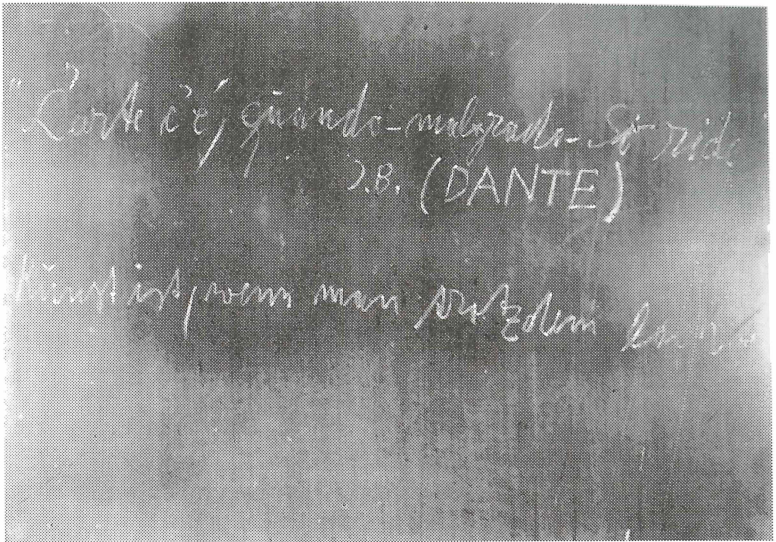 "L'arte c'è, quando-malgrado-Si ride
J.B. (DANTE)
Kunst ist, wenn man trotzdem lacht